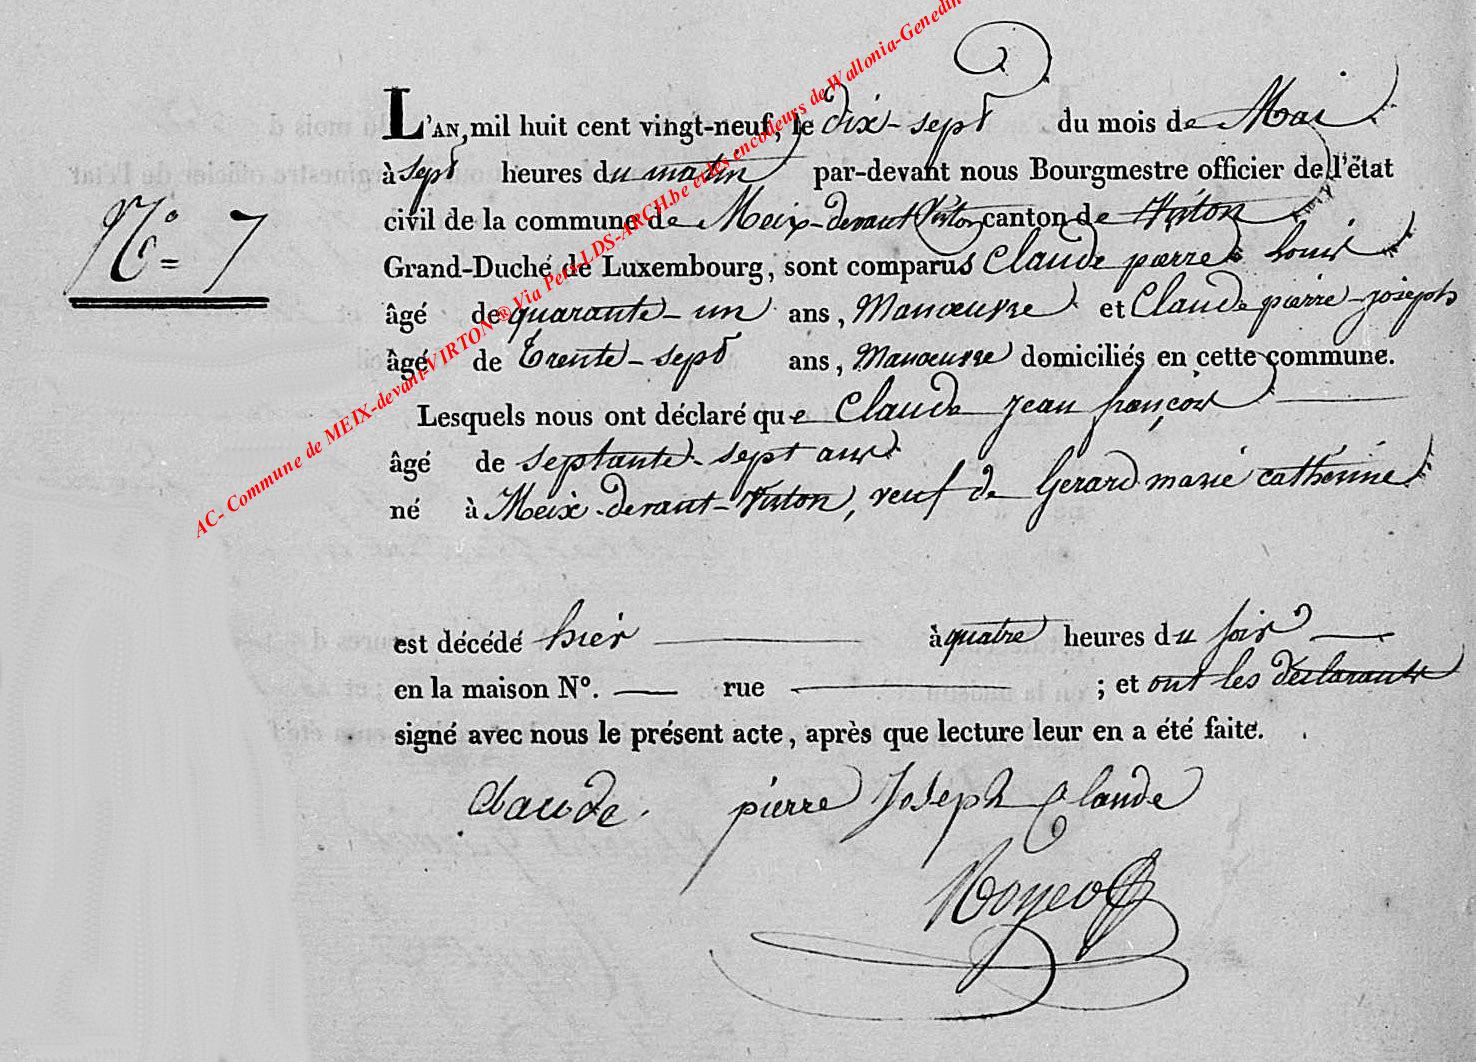 N°= 7
L'AN, mil huit cent vingt-neuf, le dix-sept du mois de Mai
à sept heures du matin par-devant nous Bourgmestre officier de l'état
civil de la commune de Meix-devant Virton canton de Virton
Grand-Duché de Luxembourg, sont comparus Claude pierre Louis
âgé de quarante-un ans, Manœuvre et Claude pierre-joseph
âgé de trente-sept ans, Manœuvre domiciliés en cette commune.
Lesquels nous ont déclaré que Claude jean françois
âgé de septante-sept ans
né à Meix-devant-Virton, veuf de Gerard marie catherine
est décédé hier à quatre heures du soir
en la maison N°. — rue — ; et ont les déclarants
signé avec nous le présent acte, après que lecture leur en a été faite.
Claude. pierre Joseph Claude
AC- Commune de MEIX-devant-VIRTON ® Via Pers-LDS-ARCH.be et les encodeurs de Wallonia-Genedin